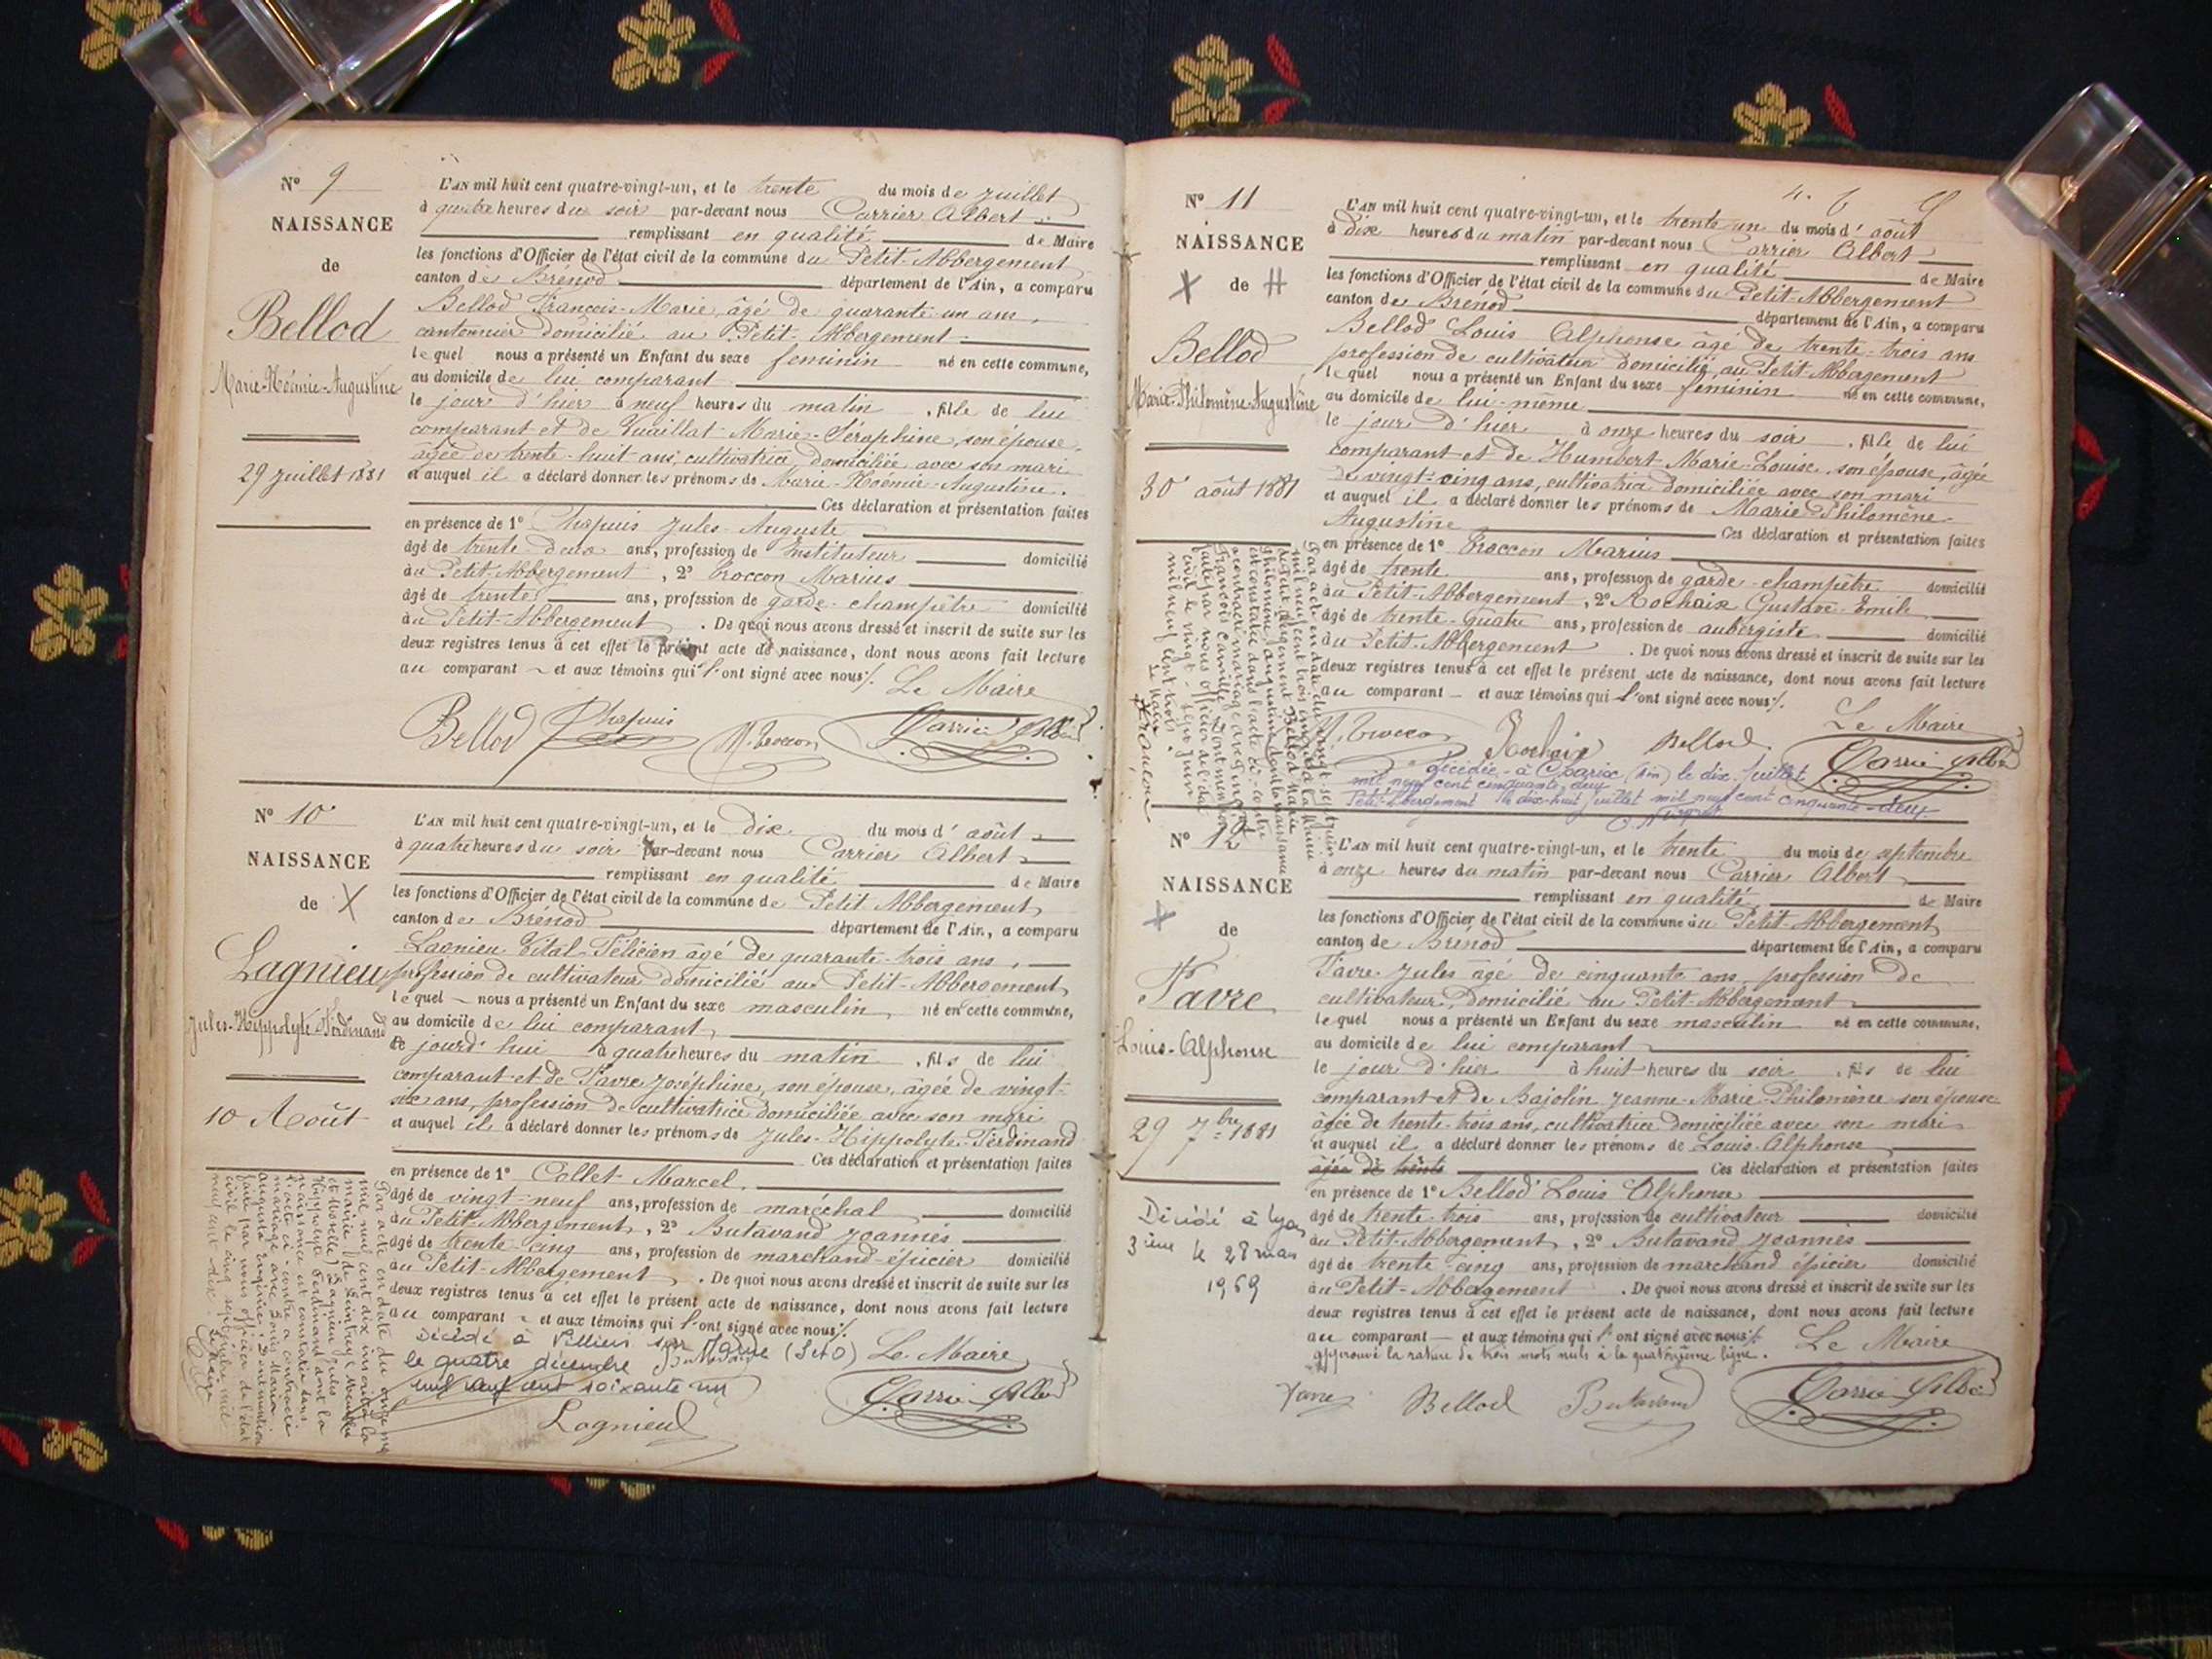 N° 9
NAISSANCE
de
Bellod
Marie-Noémie-Augustine
29 Juillet 1881
L'AN mil huit cent quatre-vingt-un, et le trente du mois de Juillet
à quatre heures du soir par-devant nous Carrier Albert
remplissant en qualité de Maire
les fonctions d'Officier de l'état civil de la commune du Petit-Abbergement
canton de Brénod département de l'Ain, a comparu
Bellod François-Marie, âgé de quarante-un ans,
cantonnier domicilié au Petit-Abbergement
lequel nous a présenté un Enfant du sexe féminin né en cette commune,
au domicile de lui comparant
le jour d'hier à neuf heures du matin, fille de lui
comparant et de Vuaillat Marie-Séraphine, son épouse,
âgée de trente-huit ans, cultivatrice domiciliée avec son mari
et auquel il a déclaré donner les prénoms de Marie-Noémie-Augustine.
Ces déclaration et présentation faites
en présence de 1° Chapuis Jules-Auguste
âgé de trente-deux ans, profession de Instituteur domicilié
au Petit-Abbergement, 2° Croccon Marius
âgé de trente ans, profession de garde-champêtre domicilié
au Petit-Abbergement. De quoi nous avons dressé et inscrit de suite sur les
deux registres tenus à cet effet le présent acte de naissance, dont nous avons fait lecture
au comparant et aux témoins qui l'ont signé avec nous./. Le Maire
Bellod Chapuis M. Croccon Carrier Albert
N° 10
NAISSANCE
de X
Lagnieu
Jules-Hippolyte-Ferdinand
10 Août
L'AN mil huit cent quatre-vingt-un, et le dix du mois d'août
à quatre heures du soir par-devant nous Carrier Albert
remplissant en qualité de Maire
les fonctions d'Officier de l'état civil de la commune de Petit Abbergement
canton de Brénod département de l'Ain, a comparu
Lagnieu Vital-Félicien âgé de quarante-trois ans,
profession de cultivateur domicilié au Petit-Abbergement
lequel nous a présenté un Enfant du sexe masculin, né en cette commune,
au domicile de lui comparant,
ce jourd'hui à quatre heures du matin, fils de lui
comparant et de Favre Joséphine, son épouse, âgée de vingt-
six ans, profession de cultivatrice domiciliée avec son mari
et auquel il a déclaré donner les prénoms de Jules-Hippolyte-Ferdinand
Ces déclaration et présentation faites
en présence de 1° Collet Marcel.
âgé de vingt-neuf ans, profession de maréchal domicilié
au Petit-Abbergement, 2° Butavand Joannès
âgé de trente-cinq ans, profession de marchand-épicier domicilié
au Petit-Abbergement. De quoi nous avons dressé et inscrit de suite sur les
deux registres tenus à cet effet le présent acte de naissance, dont nous avons fait lecture
au comparant et aux témoins qui l'ont signé avec nous./.
Par acte en date du onze
mil neuf cent dix inscrit à la
mairie de
Lagnieu Jules
Hippolyte Ferdinand dont la
naissance est constatée dans
l'acte ci-contre a contracté
mariage avec
Augusta Dont mention
faite par nous officier de l'état
civil le cinq septembre mil
neuf cent dix.
Le Maire
Décédé à Villiers sur Marne (S et O)
le quatre décembre
mil neuf cent soixante un
Le Maire
Lagnieu Carrier Albert
N° 11
NAISSANCE
X de H
Bellod
Marie-Philomène-Augustine
30 août 1881
L'AN mil huit cent quatre-vingt-un, et le trente-un du mois d'août
à dix heures du matin par-devant nous Carrier Albert
remplissant en qualité de Maire
les fonctions d'Officier de l'état civil de la commune du Petit-Abbergement
canton de Brénod département de l'Ain, a comparu
Bellod Louis Alphonse âgé de trente-trois ans
profession de cultivateur domicilié au Petit-Abbergement
lequel nous a présenté un Enfant du sexe féminin né en cette commune,
au domicile de lui-même
le jour d'hier à onze heures du soir, fille de lui
comparant et de Humbert Marie-Louise, son épouse, âgée
de vingt-cinq ans, cultivatrice domiciliée avec son mari
et auquel il a déclaré donner les prénoms de Marie-Philomène-
Augustine Ces déclaration et présentation faites
en présence de 1° Croccon Marius
âgé de trente ans, profession de garde-champêtre domicilié
au Petit-Abbergement, 2° Rochaix Gustave-Emile
âgé de trente-quatre ans, profession de aubergiste domicilié
au Petit-Abbergement. De quoi nous avons dressé et inscrit de suite sur les
deux registres tenus à cet effet le présent acte de naissance, dont nous avons fait lecture
au comparant et aux témoins qui l'ont signé avec nous./.
Le Maire
M. Croccon Rochaix Bellod Carrier Albert
Par acte en date du vingt-sept juin
mil neuf cent trois inscrit à la mairie
Bellod Marie
Philomène Augustine dont la naissance
est constatée dans l'acte ci-contre
a contracté mariage avec
François Camille Dont mention
faite par nous officier de l'état
civil le vingt-sept juin
mil neuf cent trois.
Le Maire
décédée à Charix (Ain) le dix Juillet
mil neuf cent cinquante deux
Petit-Abergement le dix-huit juillet mil neuf cent cinquante-deux
N° 12
NAISSANCE
X
de
Favre
Louis-Alphonse
29 7bre 1881
Décédé à Lyon
3ième le 28 mars
1969
L'AN mil huit cent quatre-vingt-un, et le trente du mois de septembre
à onze heures du matin par-devant nous Carrier Albert
remplissant en qualité de Maire
les fonctions d'Officier de l'état civil de la commune du Petit-Abbergement
canton de Brénod département de l'Ain, a comparu
Favre Jules âgé de cinquante ans, profession de
cultivateur, domicilié au Petit-Abbergement
lequel nous a présenté un Enfant du sexe masculin né en cette commune,
au domicile de lui comparant
le jour d'hier à huit heures du soir, fils de lui
comparant et de Bajolin Jeanne-Marie-Philomène son épouse
âgée de trente-trois ans, cultivatrice domiciliée avec son mari
et auquel il a déclaré donner les prénoms de Louis-Alphonse
âgée de trente Ces déclaration et présentation faites
en présence de 1° Bellod Louis Alphonse
âgé de trente-trois ans, profession de cultivateur domicilié
au Petit-Abbergement, 2° Butavand Joannès
âgé de trente-cinq ans, profession de marchand épicier domicilié
au Petit-Abbergement. De quoi nous avons dressé et inscrit de suite sur les
deux registres tenus à cet effet le présent acte de naissance, dont nous avons fait lecture
au comparant et aux témoins qui l'ont signé avec nous./. Le Maire
approuvé la rature de trois mots nuls à la quatorzième ligne.
Favre Bellod Butavand Carrier Albert